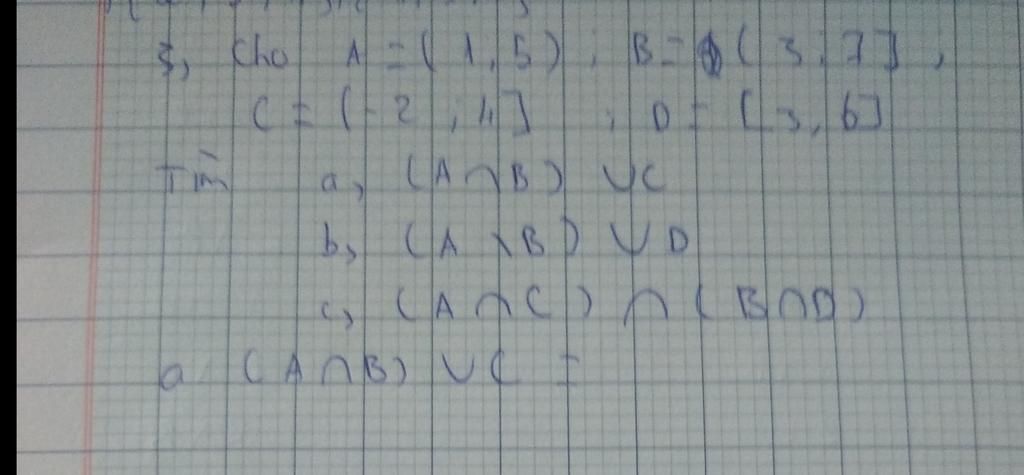 3, Cho A = ( 1, 5 ) ; B = ( 3 ; 7 ] ,
C = ( - 2 ; 4 ] ; D = [ 3, 6 ]
Tìm a, ( A ∩ B ) ∪ C
b, ( A \ B ) ∪ D
c, ( A ∩ C ) ∩ ( B ∩ D )
a ( A ∩ B ) ∪ C =